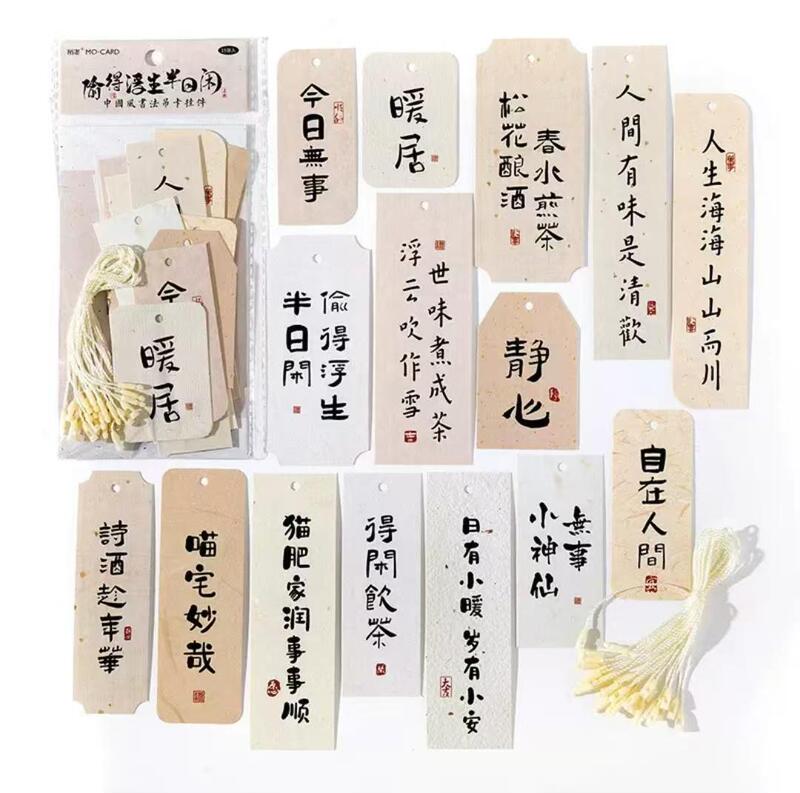 MO-CARD
15张入
偷得浮生半日闲
中國風書法吊卡挂件
人
今
暖居
今日無事
暖居
春水煎茶
松花酿酒
人間有味是清歡
人生海海山山而川
偷得浮生
半日閑
世味煮成茶
浮云吹作雪
静心
自在人間
詩酒趁年華
喵宅妙哉
猫肥家润事事顺
得閑飲茶
日有小暖岁有小安
無事
小神仙